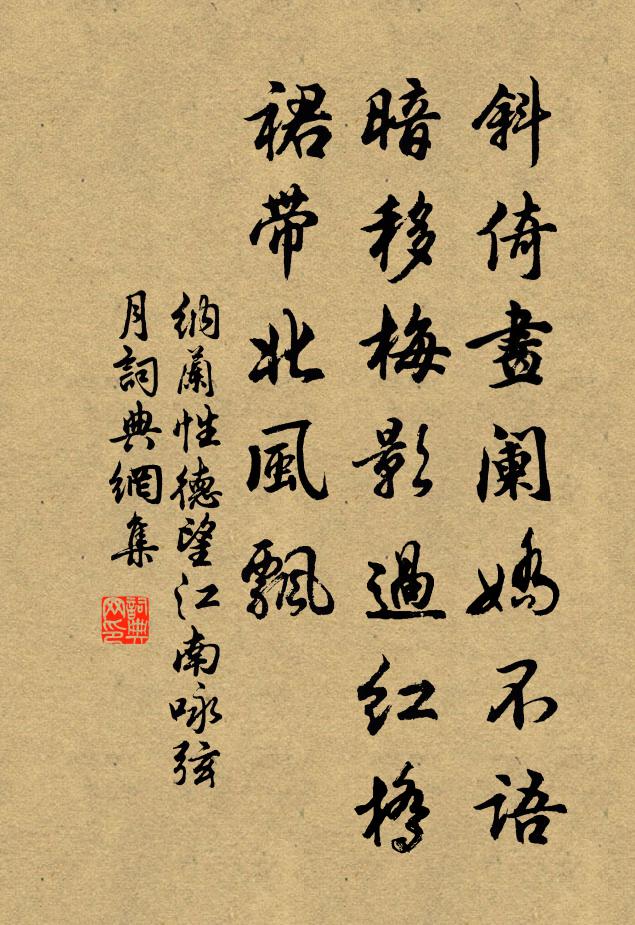 斜倚畫闌嬌不語
暗移梅影過紅橋
裙带北風飄
納蘭性德望江南咏弦
月詞典網集
詞典
网印